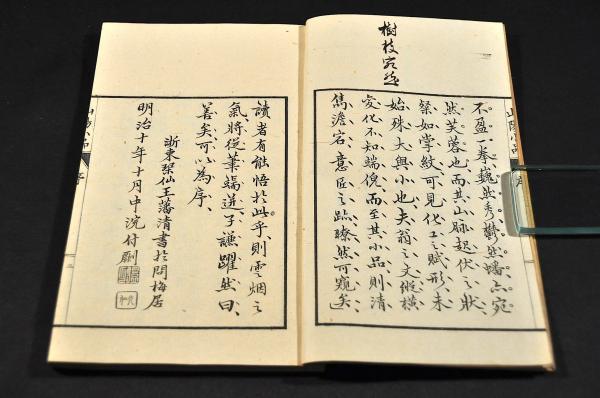 樹枝宛然
山陽小品 序
不盈一拳、巍然秀、鬱然蟠、宛
然芙蓉也、而其山脉起伏之狀、
粲如掌紋、可見化工之賦形、未
始殊大與小也、夫翁之文、縱橫
変化、不知端倪、而至其小品、則清
雋澹宕、意匠之跡、瞭然可窺矣、
讀者有能悟於此乎、則雲烟之
氣、將從筆端迸、子謙躍然曰、
善矣、可以為序、
浙東琴仙王藩清書於問梅居
明治十年十月中浣付劂